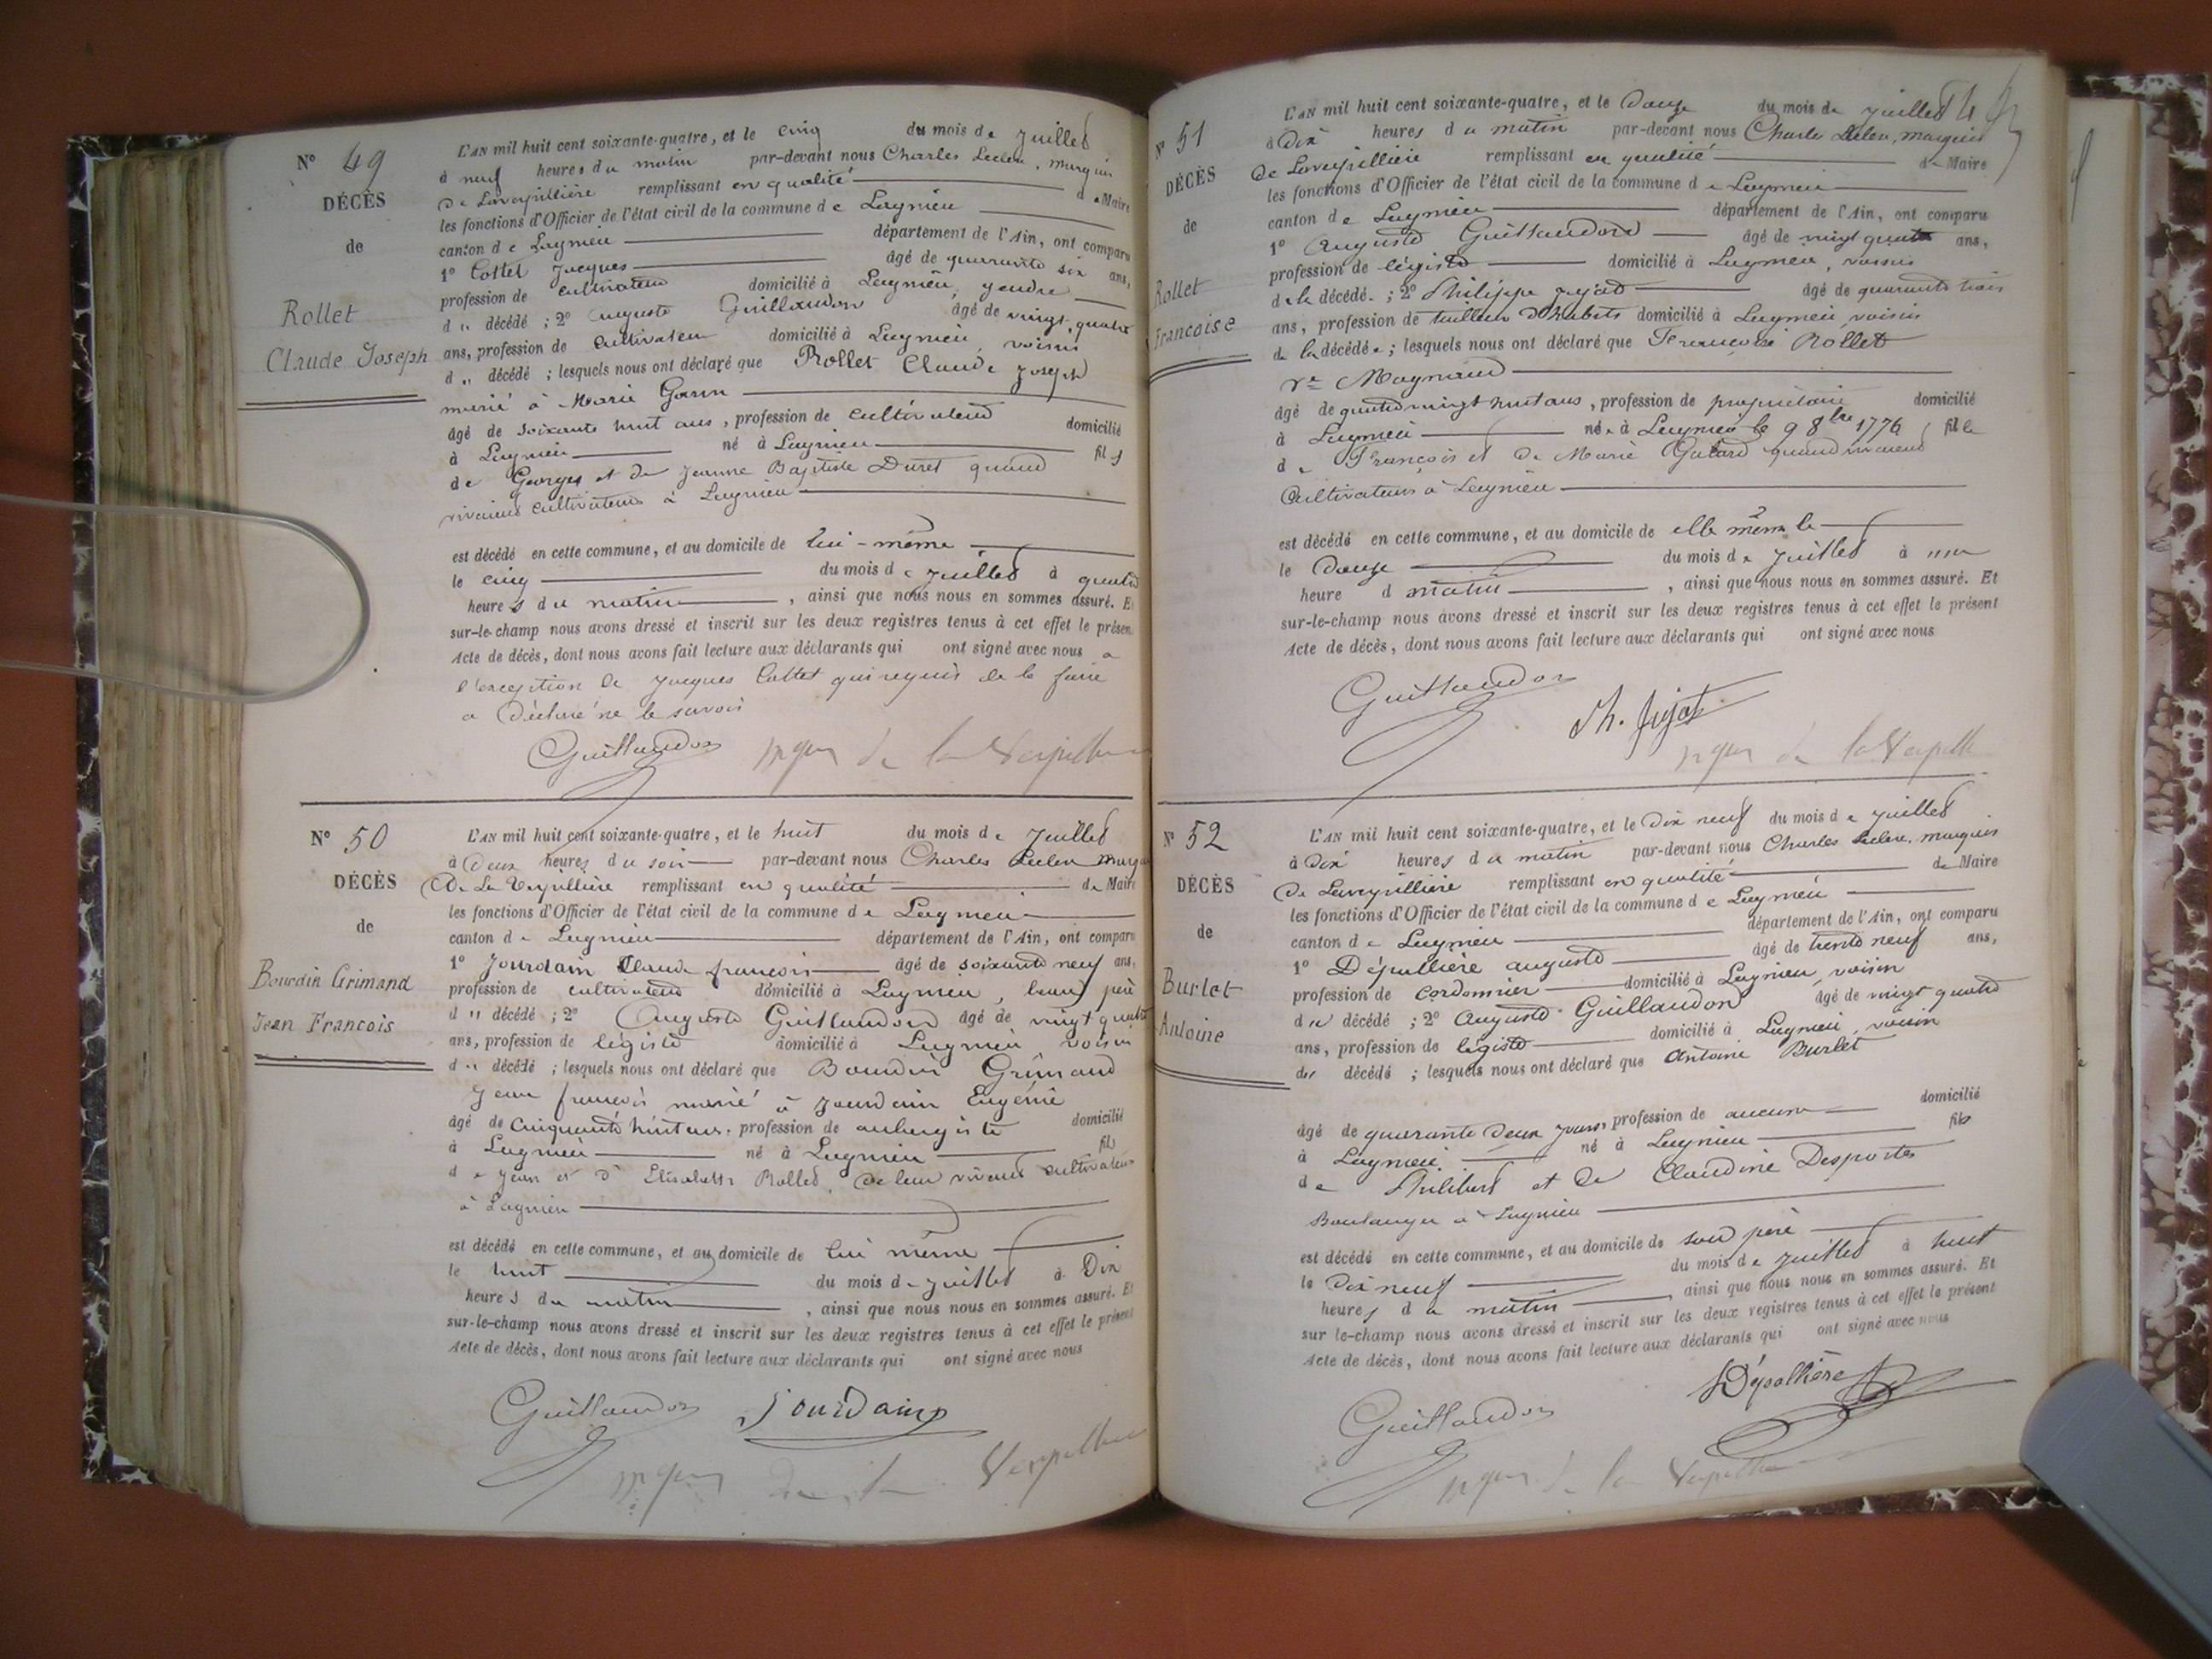 N° 49
DÉCÈS
de
Rollet
Claude Joseph
L'AN mil huit cent soixante-quatre, et le cinq du mois de juillet
à neuf heures du matin par-devant nous Charles Leclerc, marquis
de Laverpillière remplissant en qualité de Maire
les fonctions d'Officier de l'état civil de la commune de Lagnieu
canton de Lagnieu département de l'Ain, ont comparu
1° Cottet Jacques âgé de quarante six ans,
profession de cultivateur domicilié à Lagnieu, gendre
du décédé ; 2° Auguste Guillaudon âgé de vingt quatre
ans, profession de cultivateur domicilié à Lagnieu, voisin
du décédé ; lesquels nous ont déclaré que Rollet Claude Joseph
marié à Marie Garin
âgé de soixante huit ans, profession de cultivateur domicilié
à Lagnieu né à Lagnieu fils
de Georges et de Jeanne Baptiste Duret quand
vivaient cultivateurs à Lagnieu
est décédé en cette commune, et au domicile de lui-même
le cinq du mois de juillet à quatre
heures du matin, ainsi que nous nous en sommes assuré. Et
sur-le-champ nous avons dressé et inscrit sur les deux registres tenus à cet effet le présent
Acte de décès, dont nous avons fait lecture aux déclarants qui ont signé avec nous à
l'exception de Jacques Cottet qui requis de le faire
a déclaré ne le savoir
Guillaudon mquis de la Verpillière
N° 50
DÉCÈS
de
Bourdin Grimand
Jean Francois
L'AN mil huit cent soixante-quatre, et le huit du mois de juillet
à deux heures du soir par-devant nous Charles Leclerc marquis
De La Verpillière remplissant en qualité de Maire
les fonctions d'Officier de l'état civil de la commune de Lagnieu
canton de Lagnieu département de l'Ain, ont comparu
1° Jourdain Claude françois âgé de soixante neuf ans,
profession de cultivateur domicilié à Lagnieu, beau père
du décédé ; 2° Auguste Guillaudon âgé de vingt quatre
ans, profession de légiste domicilié à Lagnieu voisin
du décédé ; lesquels nous ont déclaré que Bourdin Grimand
Jean françois marié à Jourdain Eugénie
âgé de cinquante huit ans, profession de aubergiste domicilié
à Lagnieu né à Lagnieu fils
de Jean et d'Elisabeth Rollet, de leur vivant cultivateurs
à Lagnieu
est décédé en cette commune, et au domicile de lui même
le huit du mois de juillet à Dix
heures du matin, ainsi que nous nous en sommes assuré. Et
sur-le-champ nous avons dressé et inscrit sur les deux registres tenus à cet effet le présent
Acte de décès, dont nous avons fait lecture aux déclarants qui ont signé avec nous
Guillaudon Jourdain
mquis de la Verpillière
N° 51
DÉCÈS
de
Rollet
Francoise
L'AN mil huit cent soixante-quatre, et le douze du mois de juillet
à Dix heures du matin par-devant nous Charles Leclerc, marquis
de Laverpillière remplissant en qualité de Maire
les fonctions d'Officier de l'état civil de la commune de Lagnieu
canton de Lagnieu département de l'Ain, ont comparu
1° Auguste Guillaudon âgé de vingt quatre ans,
profession de légiste domicilié à Lagnieu, voisin
de la décédé. ; 2° Philippe jujat âgé de quarante trois
ans, profession de tailleur d'habits domicilié à Lagnieu, voisin
de la décédée ; lesquels nous ont déclaré que Françoise Rollet
Ve Magnand
âgé de quatre vingt huit ans, profession de propriétaire domicilié
à Lagnieu née à Lagnieu le 9 8bre 1776, fille
de François et de Marie Galard quand vivaient
Cultivateurs à Lagnieu
est décédé en cette commune, et au domicile de elle même le
le Douze du mois de juillet à une
heure d matin, ainsi que nous nous en sommes assuré. Et
sur-le-champ nous avons dressé et inscrit sur les deux registres tenus à cet effet le présent
Acte de décès, dont nous avons fait lecture aux déclarants qui ont signé avec nous
Guillaudon
Ph. Jujat
mquis de la Verpillière
N° 52
DÉCÈS
de
Burlet
Antoine
L'AN mil huit cent soixante-quatre, et le Dix neuf du mois de juillet
à Dix heures du matin par-devant nous Charles Leclerc, marquis
de Laverpillière remplissant en qualité de Maire
les fonctions d'Officier de l'état civil de la commune de Lagnieu
canton de Lagnieu département de l'Ain, ont comparu
1° Dépallière auguste âgé de trente neuf ans,
profession de cordonnier domicilié à Lagnieu, voisin
du décédé ; 2° Auguste Guillaudon âgé de vingt quatre
ans, profession de légiste domicilié à Lagnieu, voisin
du décédé ; lesquels nous ont déclaré que Antoine Burlet
âgé de quarante deux jours, profession de aucune domicilié
à Lagnieu né à Lagnieu fils
de Philibert et de Claudine Desportes
Boulanger à Lagnieu
est décédé en cette commune, et au domicile de son père
le Dix neuf du mois de juillet à huit
heures du matin, ainsi que nous nous en sommes assuré. Et
sur le-champ nous avons dressé et inscrit sur les deux registres tenus à cet effet le présent
Acte de décès, dont nous avons fait lecture aux déclarants qui ont signé avec nous
Dépallière
Guillaudon
mquis de la Verpillière